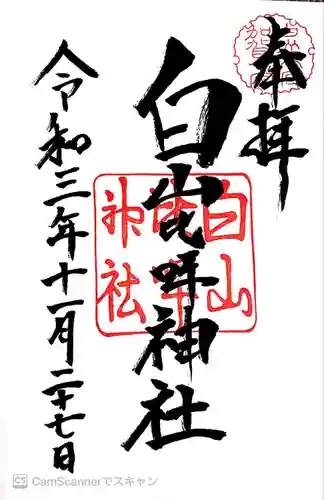 奉拝
白山比咩神社
令和三年十一月二十七日
白山
神社
CS CamScannerでスキャン